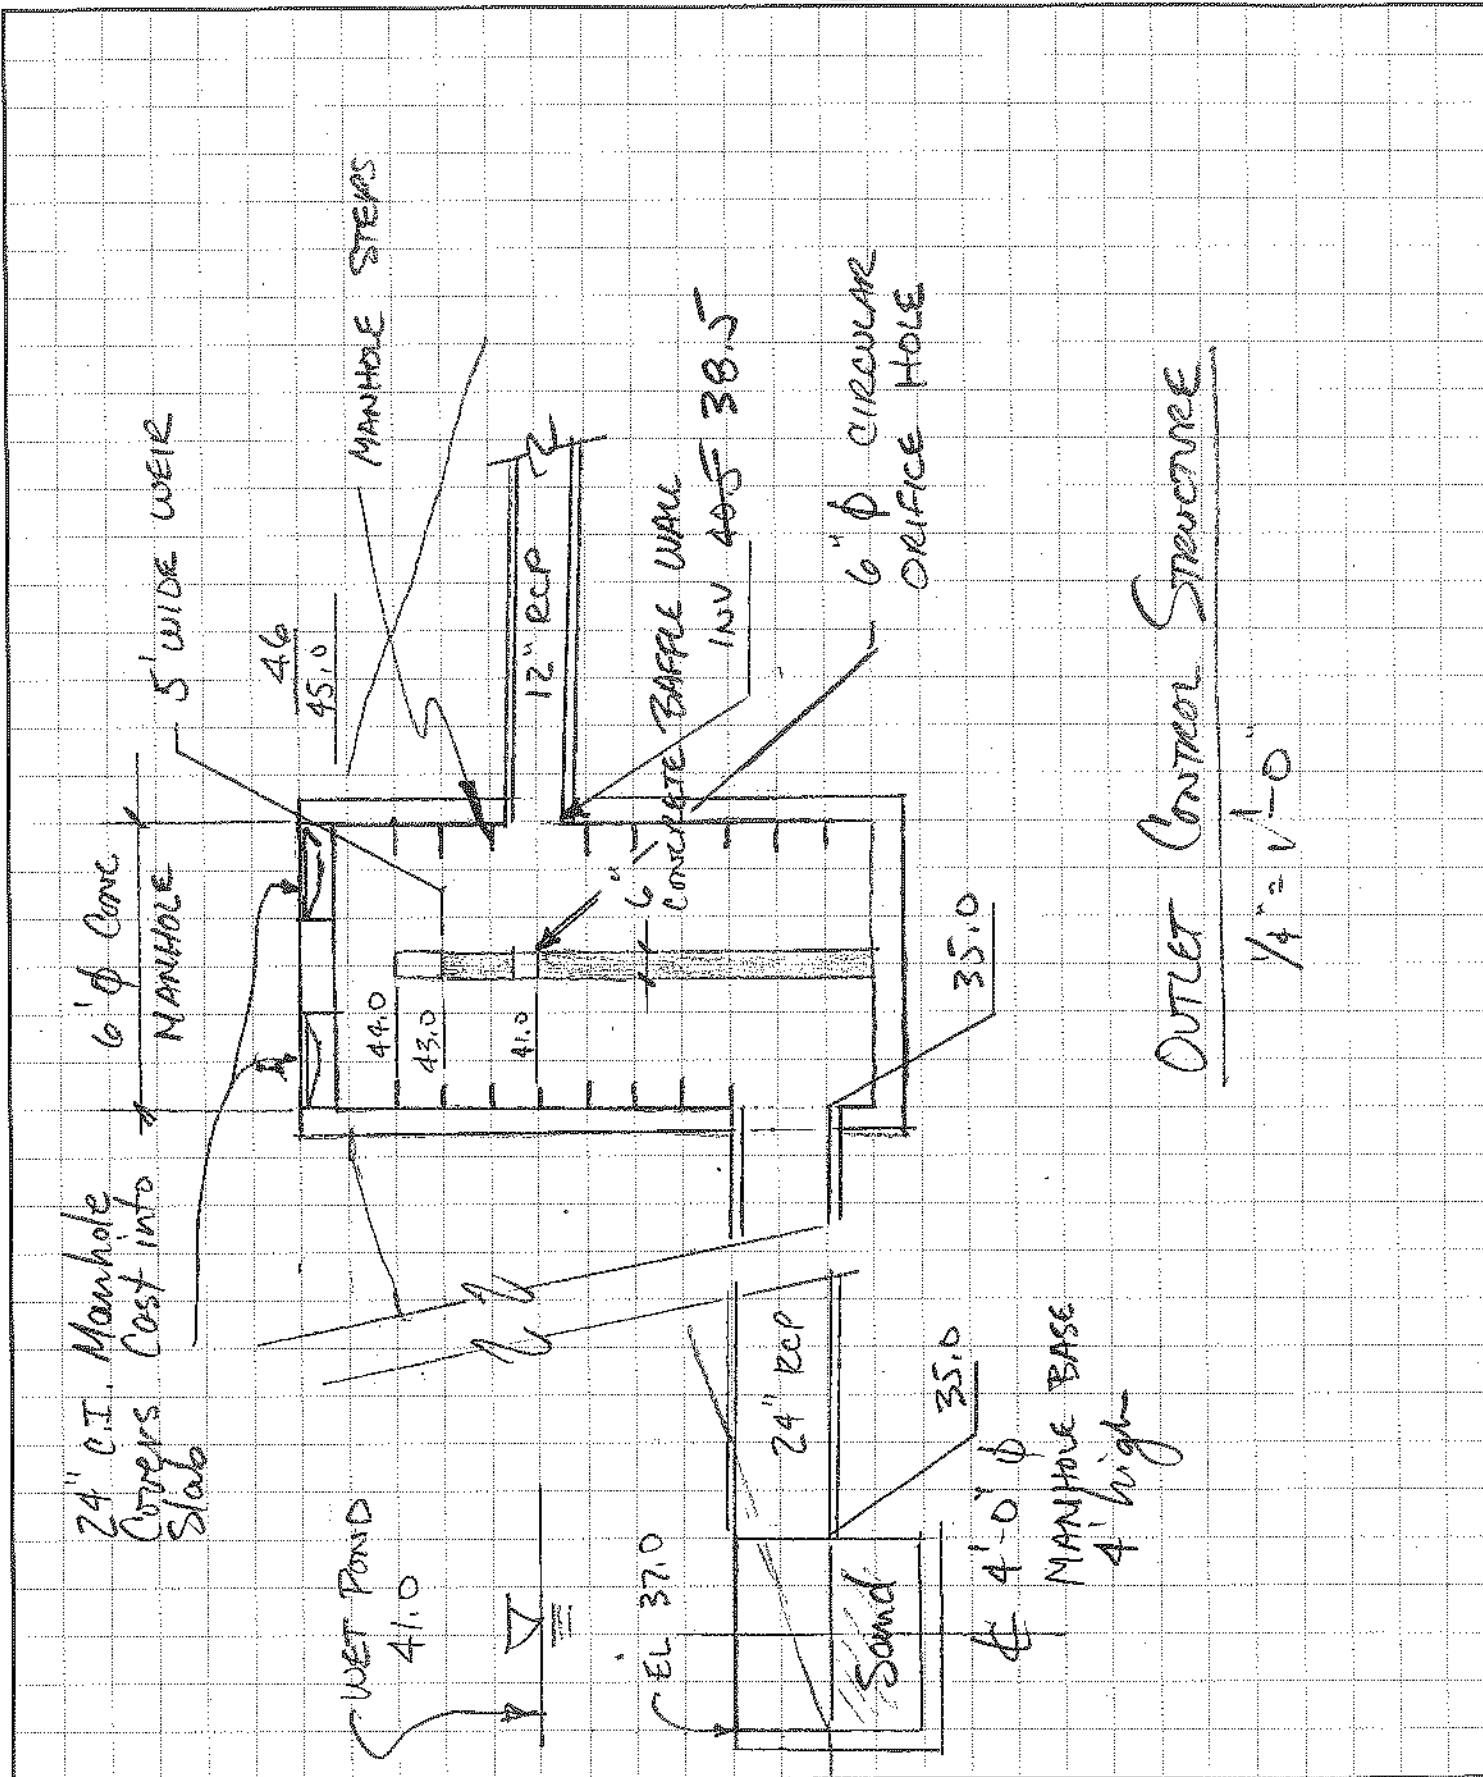 24" C.I. Manhole
Covers Cast into
Slab
6' ϕ Conc
MANHOLE
5' WIDE WEIR
46
45.0
MANHOLE STEPS
WET POND
41.0
44.0
43.0
41.0
12" RCP
6"
CONCRETE BAFFLE WALL
INV 40.5 38.5
6" ϕ CIRCULAR
ORIFICE HOLE
EL 37.0
24" RCP
Sand
35.0
35.0
℄ 4'-0" ϕ
MANHOLE BASE
4' high
OUTLET CONTROL STRUCTURE
1/4" = 1'-0"